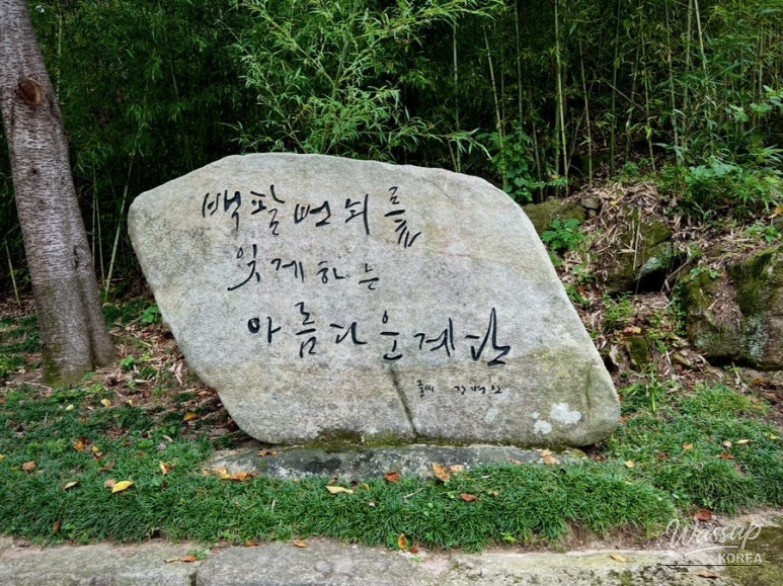 백팔번뇌를
잊게하는
아름다운계단
글씨
Wassup
KOREA